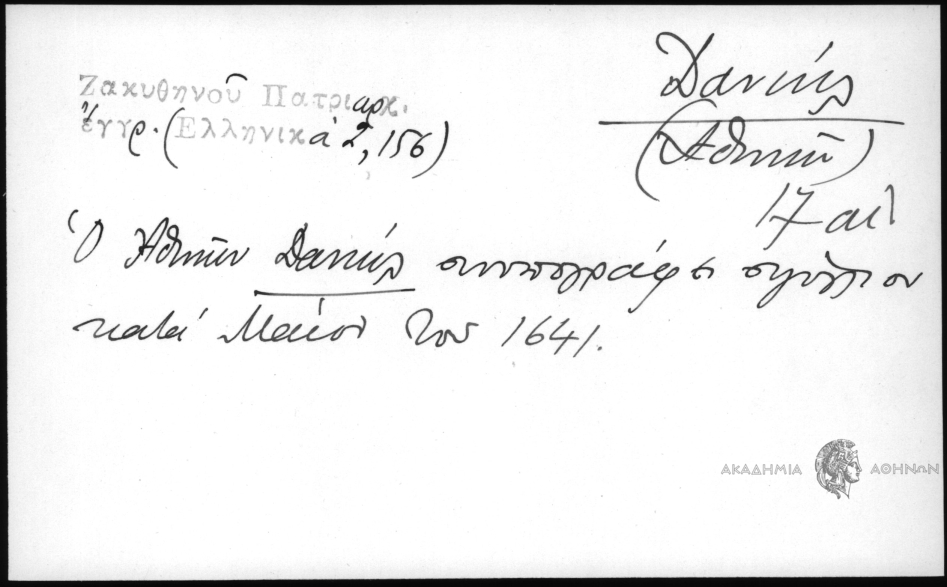 Ζακυθηνοῦ Πατριαρχ.
ἔγγρ. (Ἑλληνικά 2, 156)
Δανιήλ
(Ἀθηνῶν)
17 αἰ
Ὁ Ἀθηνῶν Δανιήλ συνυπογράφει σιγίλλιον
κατά Μάϊον τοῦ 1641.
ΑΚΑΔΗΜΙΑ ΑΘΗΝΩΝ